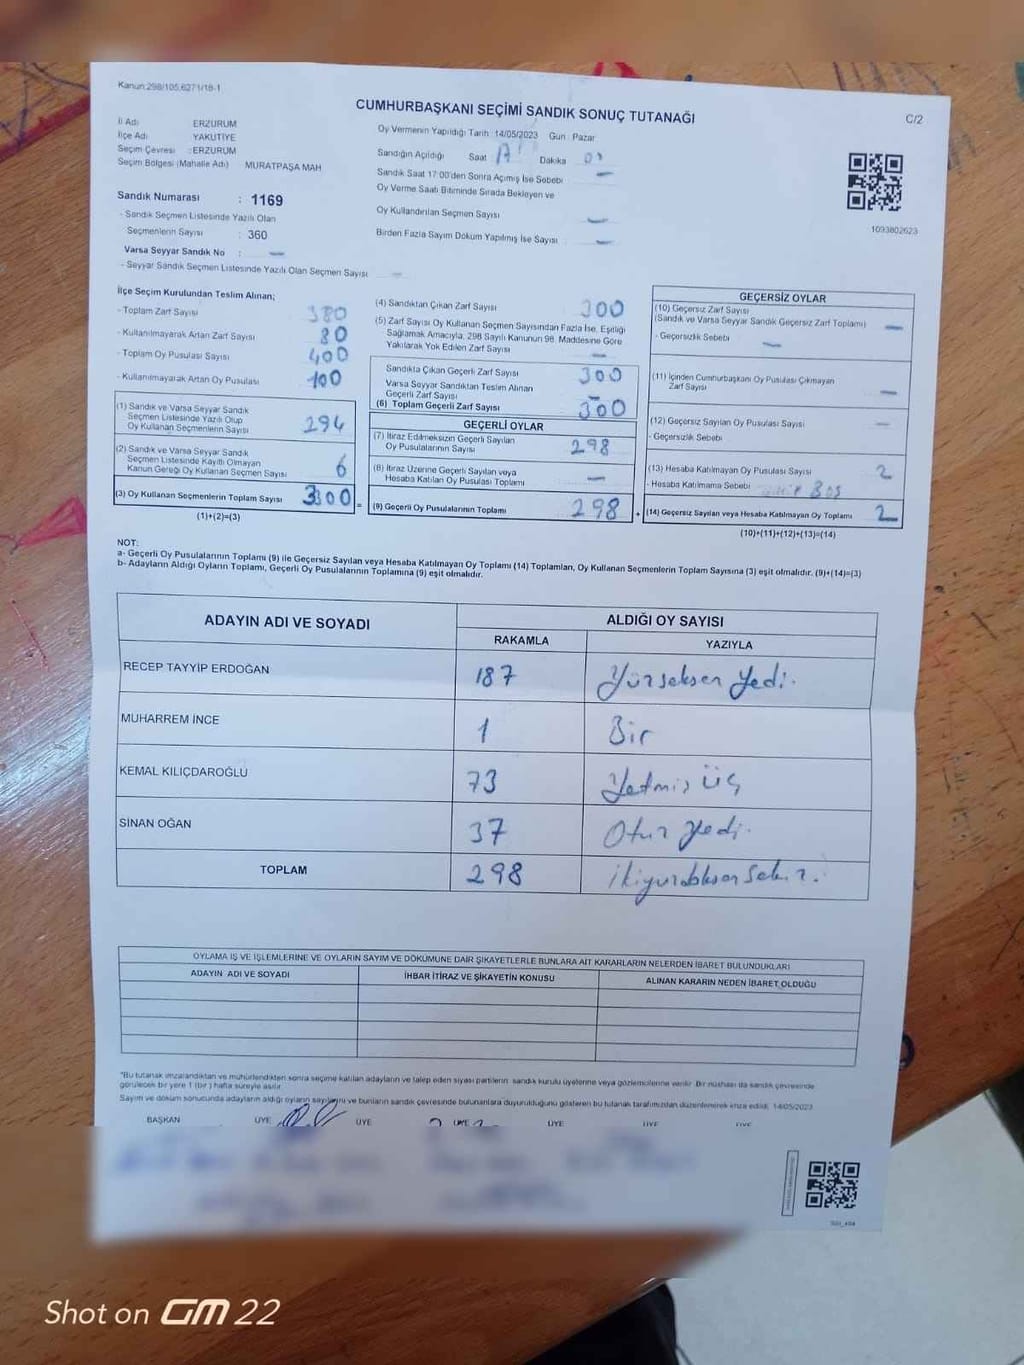 Kanun:298/105,6271/18-1
CUMHURBAŞKANI SEÇİMİ SANDIK SONUÇ TUTANAĞI
C/2
İl Adı ERZURUM
İlçe Adı YAKUTİYE
Seçim Çevresi : ERZURUM
Seçim Bölgesi (Mahalle Adı) MURATPAŞA MAH
Oy Vermenin Yapıldığı Tarih :14/05/2023 Gün : Pazar
Sandığın Açıldığı Saat 17 Dakika 01
Sandık Saat 17:00'den Sonra Açmış İse Sebebi —
Oy Verme Saati Bitiminde Sırada Bekleyen ve
Oy Kullandırılan Seçmen Sayısı —
Birden Fazla Sayım Döküm Yapılmış İse Sayısı : —
1093802623
Sandık Numarası : 1169
- Sandık Seçmen Listesinde Yazılı Olan
Seçmenlerin Sayısı : 360
Varsa Seyyar Sandık No : —
- Seyyar Sandık Seçmen Listesinde Yazılı Olan Seçmen Sayısı —
İlçe Seçim Kurulundan Teslim Alınan;
- Toplam Zarf Sayısı 380
- Kullanılmayarak Artan Zarf Sayısı 80
- Toplam Oy Pusulası Sayısı 400
- Kullanılmayarak Artan Oy Pusulası 100
(1) Sandık ve Varsa Seyyar Sandık
Seçmen Listesinde Yazılı Olup
Oy Kullanan Seçmenlerin Sayısı 294
(2) Sandık ve Varsa Seyyar Sandık
Seçmen Listesinde Kayıtlı Olmayan
Kanun Gereği Oy Kullanan Seçmen Sayısı 6
(3) Oy Kullanan Seçmenlerin Toplam Sayısı 300 =
(1)+(2)=(3)
(4) Sandıktan Çıkan Zarf Sayısı 300
(5) Zarf Sayısı Oy Kullanan Seçmen Sayısından Fazla İse, Eşitliği
Sağlamak Amacıyla, 298 Sayılı Kanunun 98. Maddesine Göre
Yakılarak Yok Edilen Zarf Sayısı —
Sandıkta Çıkan Geçerli Zarf Sayısı 300
Varsa Seyyar Sandıktan Teslim Alınan
Geçerli Zarf Sayısı —
(6) Toplam Geçerli Zarf Sayısı 300
GEÇERLİ OYLAR
(7) İtiraz Edilmeksizin Geçerli Sayılan
Oy Pusulalarının Sayısı 298
(8) İtiraz Üzerine Geçerli Sayılan veya
Hesaba Katılan Oy Pusulası Toplamı —
(9) Geçerli Oy Pusulalarının Toplamı 298 +
GEÇERSİZ OYLAR
(10) Geçersiz Zarf Sayısı
(Sandık ve Varsa Seyyar Sandık Geçersiz Zarf Toplamı) —
- Geçersizlik Sebebi —
(11) İçinden Cumhurbaşkanı Oy Pusulası Çıkmayan
Zarf Sayısı —
(12) Geçersiz Sayılan Oy Pusulası Sayısı —
- Geçersizlik Sebebi
(13) Hesaba Katılmayan Oy Pusulası Sayısı 2
- Hesaba Katılmama Sebebi Boş
(14) Geçersiz Sayılan veya Hesaba Katılmayan Oy Toplamı 2
(10)+(11)+(12)+(13)=(14)
NOT:
a- Geçerli Oy Pusulalarının Toplamı (9) ile Geçersiz Sayılan veya Hesaba Katılmayan Oy Toplamı (14) Toplamları, Oy Kullanan Seçmenlerin Toplam Sayısına (3) eşit olmalıdır. (9)+(14)=(3)
b- Adayların Aldığı Oyların Toplamı, Geçerli Oy Pusulalarının Toplamına (9) eşit olmalıdır.
ADAYIN ADI VE SOYADI ALDIĞI OY SAYISI
RAKAMLA YAZIYLA
RECEP TAYYİP ERDOĞAN 187 Yürseksen Yedi.
MUHARREM İNCE 1 Bir
KEMAL KILIÇDAROĞLU 73 Yetmiş Üç
SİNAN OĞAN 37 Otuz Yedi.
TOPLAM 298
OYLAMA İŞ VE İŞLEMLERİNE VE OYLARIN SAYIM VE DÖKÜMÜNE DAİR ŞİKAYETLERLE BUNLARA AİT KARARLARIN NELERDEN İBARET BULUNDUKLARI
ADAYIN ADI VE SOYADI İHBAR İTİRAZ VE ŞİKAYETİN KONUSU ALINAN KARARIN NEDEN İBARET OLDUĞU
*Bu tutanak imzalandıktan ve mühürlendikten sonra seçime katılan adayların ve talep eden siyasi partilerin sandık kurulu üyelerine veya gözlemcilerine verilir. Bir nüshası da sandık çevresinde
görülecek bir yere 1 (bir) hafta süreyle asılır.
Sayım ve döküm sonucunda adayların aldığı oyların sayılarını ve bunların sandık çevresinde bulunanlara duyurulduğunu gösteren bu tutanak tarafımızdan düzenlenerek imza edildi. 14/05/2023
BAŞKAN ÜYE ÜYE ÜYE ÜYE ÜYE ÜYE
Shot on GM 22